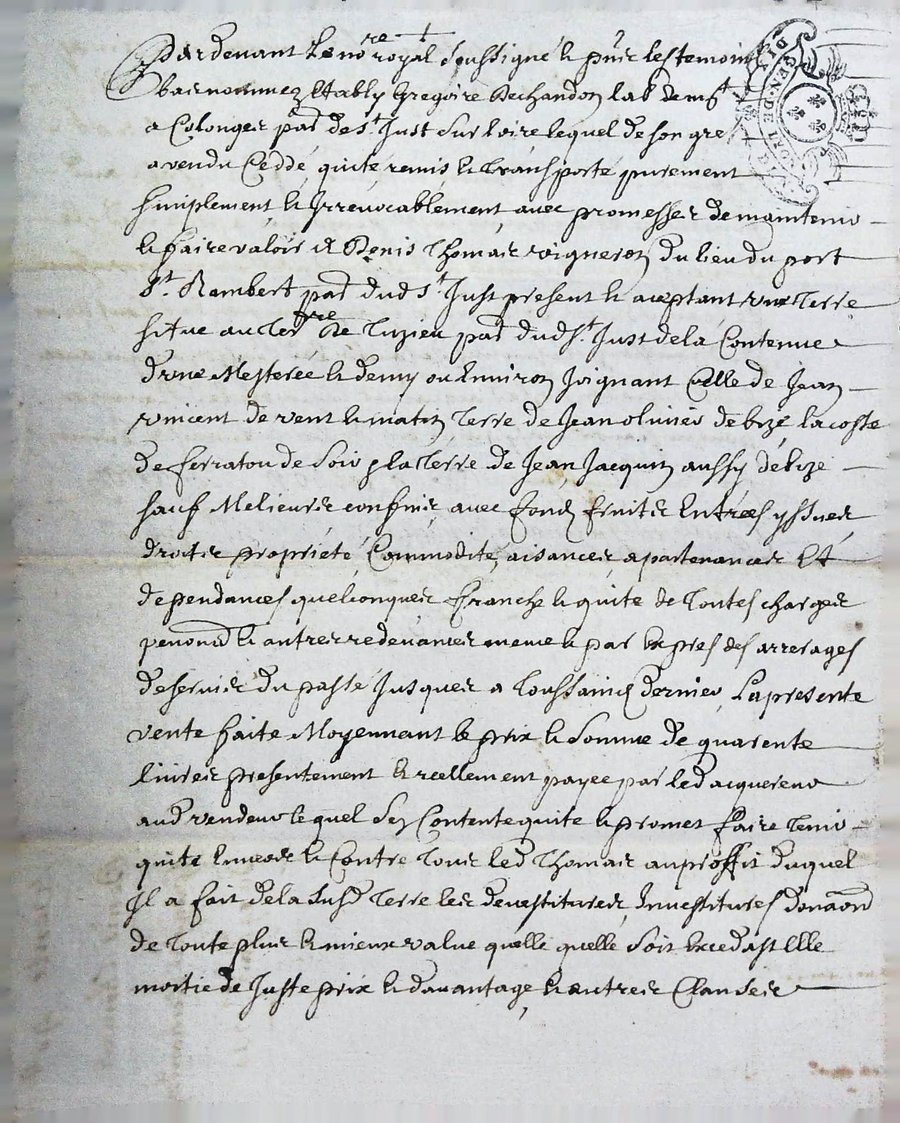 Pardevant le no.re royal soussigné & pnt les temoins
bas nommez Etably Gregoire Dechandon lab.
a Colonges par de St Just sur loire lequel de son gre
a vendu Ceddé quité remis & Transporté purement
simplement & Irrevocablement avec promesses de maintenir
& faire valoir A Denis Thomas vigneron du lieu du port
St Rambert par dud St Just present & aceptant une Terre
situe au Terre de Tuzieu par dud St Just de la Contenue
d'une Mesterée & demy ou Environ Joignant Celle de Jean
vincent de vent & matin Terre de Jean olivier de bize la coste
de ferraton de Soir & la Terre de Jean Jacquin aussy de bize
sauf Melieurs confins avec fondz fruits Entrées yssues
droits propriété Commodité, aisances, apartenances Et
dependances quelconques franche & quite de Toutes charges
penons & autres redevances meme & par Expres des arrerages
de servis du passé Jusques a Toussaincts dernier La presente
vente faite Moyennant le prix & Somme de quarente
livres presentement & reellement payee par led acquereur
aud vendeur lequel Sen Contente quite & promet faire Tenir
quite Envers & Contre Tous led Thomas au proffit duquel
Il a fait de la Susd Terre les devestitures, Investitures donaon
de Toute plus & mieux value quelle quelle Soit Exceda st Elle
moitie de Juste prix & davantage, & autres Clauses